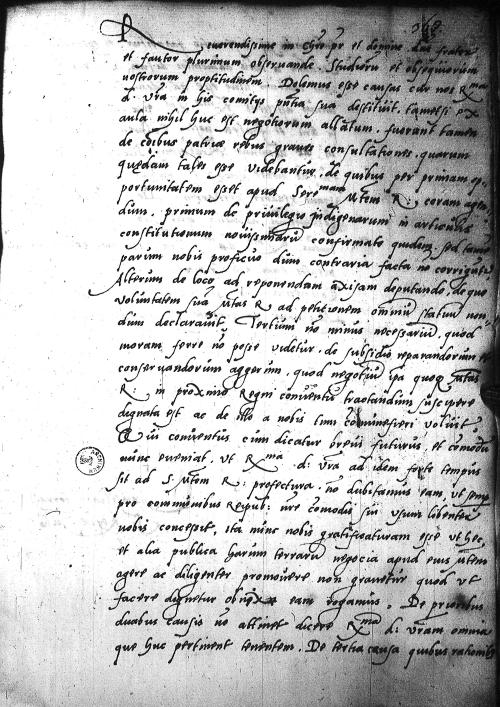 Reverendissime in Chro pr et domine, dne frater
et fautor plurimum observande. Studiorum et obsequiorum
nostrorum promptitudinem. Dolemus esse causas cur nos Rma
d. vra in his comitijs pntia sua destituit. tametsi ex
aula nihil huc est negotiorum allatum. fuerant tamen
de omnibus patriae rebus graves consultationes, quarum
quędam tales esse videbantur, de quibus per primam op-
portunitatem esset apud Seremam Mtem R: coram agen
dum. primum de privilegio indigenarum in articulis
constitutionum novissimarum confirmato quidem, sed tamen
parum nobis proficuo dum contraria facta no corriguntur
Alterum de loco ad reponendam axisam deputando, de quo
voluntatem sua Mtas R ad petitionem omniu statuu non
dum declaravit. Tertium no minus necessariu, quod
moram ferre no posse videtur, de subsidio reparandorum et
conservandorum aggerum, quod negotiu ipa quoq Mtas
R in proximo Regni conventu tractandum suscipere
dignata est ac de illo a nobis tum commonefieri voluit
Qui conventus cum dicatur brevi futurus, et commodu
nunc eveniat, ut Rma d: vra ad idem forte tempus
sit ad S Mtem R: profectura, no dubitamus eam, ut semp
pro commodis Reipub: nre comodu sui usum libenter
nobis concessit, ita nunc nobis gratificaturam esse ut hec,
et alia publica harum terraru negocia apud eius Mtem
agere ac diligenter promovere non gravetur quod ut
facere dignetur obnixe eam rogamus. De prioribus
duabus causis no attinet dicere Rma d: vram omnia
que huc pertinent tenentem. De tertia causa quibus rationib